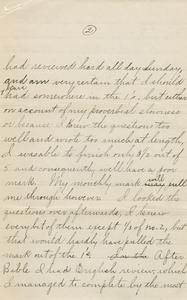 (2)
had reviewed hard all day Sunday,
and am very certain that I should
have
had somewhere in the 1's, but either
on account of my proverbial slowness
or because I knew the questions too
well and wrote too much at length,
I was able to finish only 3 1/2 out of
5 and consequently will have a poor
mark. My monthly mark will
me through however. I looked the
questions over afterwards, I knew
every bit of them except 1/3 of no. 2, but
that would hardly have pulled the
mark out of the 1's. After
Bible I had English review, which
I managed to complete by the most